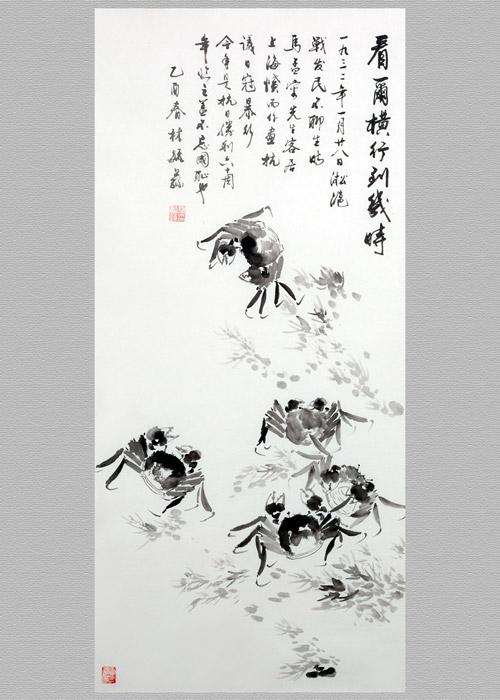 看爾橫行到幾時
一九三二年一月廿八日淞滬
戰发民不聊生時
馬孟容先生客居
上海憤而作畫抗
議日寇暴行
今年是抗日勝利六十周
年臨之蓋不忘國恥也
乙酉春林